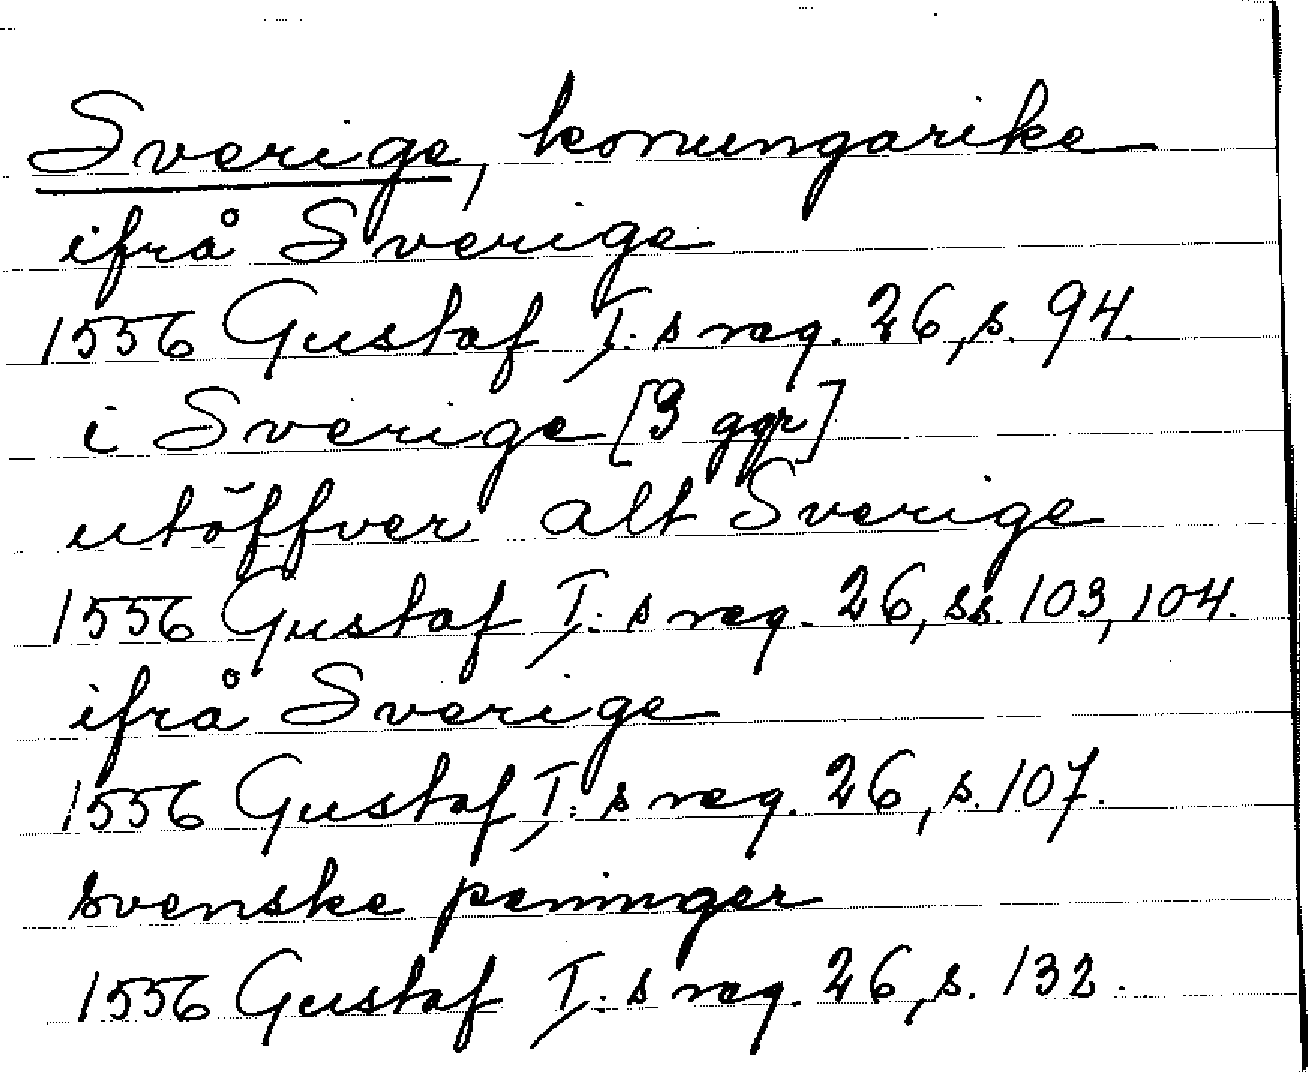 Sverige, konungarike
ifrå Sverige
1556 Gustaf I:s reg. 26, s. 94.
i Sverige [3 ggr]
utöffver alt Sverige
1556 Gustaf I:s reg. 26, ss. 103, 104.
ifrå Sverige
1556 Gustaf I:s reg. 26, s. 107.
svenske peninger
1556 Gustaf I:s reg. 26, s. 132.